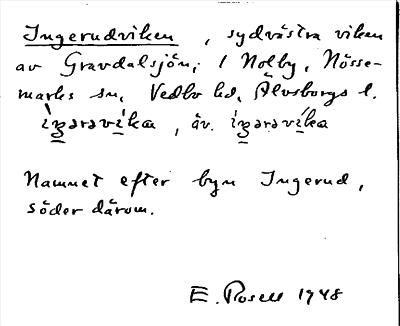 Ingerudviken , sydvästra viken
av Gravdalsjön, i Nolby, Nösse-
marks sn, Vedbo hd, Älvsborgs l.
ìŋərəvíka , äv. íŋərəvíka
Namnet efter byn Ingerud,
söder därom.
E. Rosell 1948